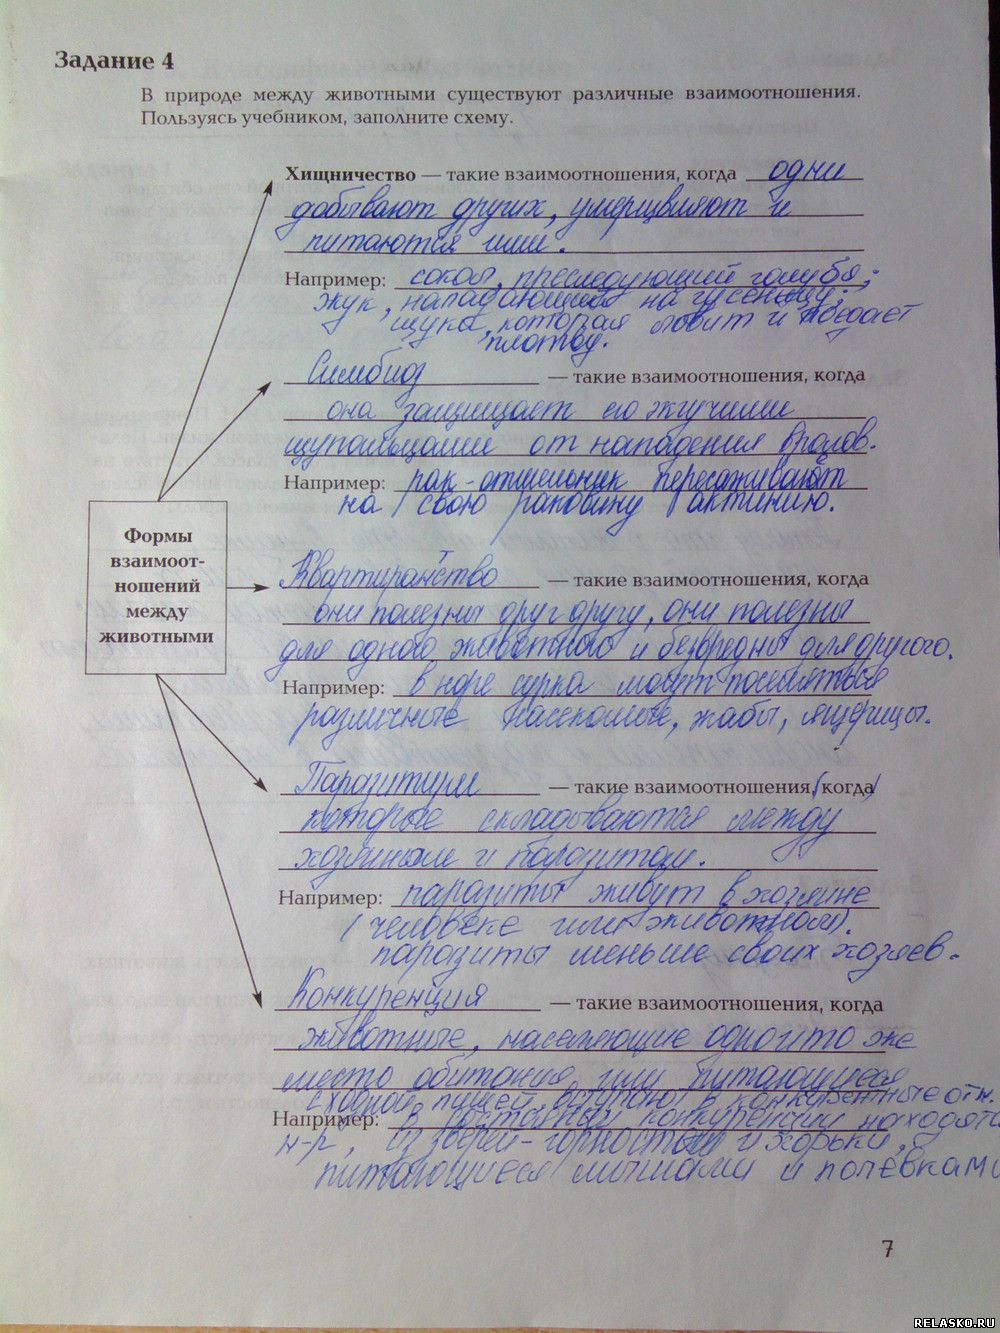 Задание 4
В природе между животными существуют различные взаимоотношения.
Пользуясь учебником, заполните схему.
Хищничество — такие взаимоотношения, когда одни
добывают других, умерщвляют и
питаются ими.
Например: сокол, преследующий голубя;
жук, нападающий на гусеницу;
щука, которая ловит и поедает
плотву.
Симбиоз — такие взаимоотношения, когда
она защищает его жгучими
щупальцами от нападения врагов.
Например: рак-отшельник пересаживают
на свою раковину актинию.
Формы
взаимоот-
ношений
между
животными
Квартиранство — такие взаимоотношения, когда
они полезны друг другу, они полезны
для одного животного и безвредны для другого.
Например: в норе сурка могут поселяться
различные насекомые, жабы, ящерицы.
Паразитизм — такие взаимоотношения, (когда)
которые складываются между
хозяином и паразитом.
Например: паразиты живут в хозяине
(человеке или животном).
паразиты меньше своих хозяев.
Конкуренция — такие взаимоотношения, когда
животные, населяющие одно и то же
место обитания, или питающиеся
сходной пищей, вступают в конкурентные отн.
Например: в конкуренции находятся
н-р, из зверей - горностаи и хорьки,
питающиеся мышами и полёвками
7
RELASKO.RU